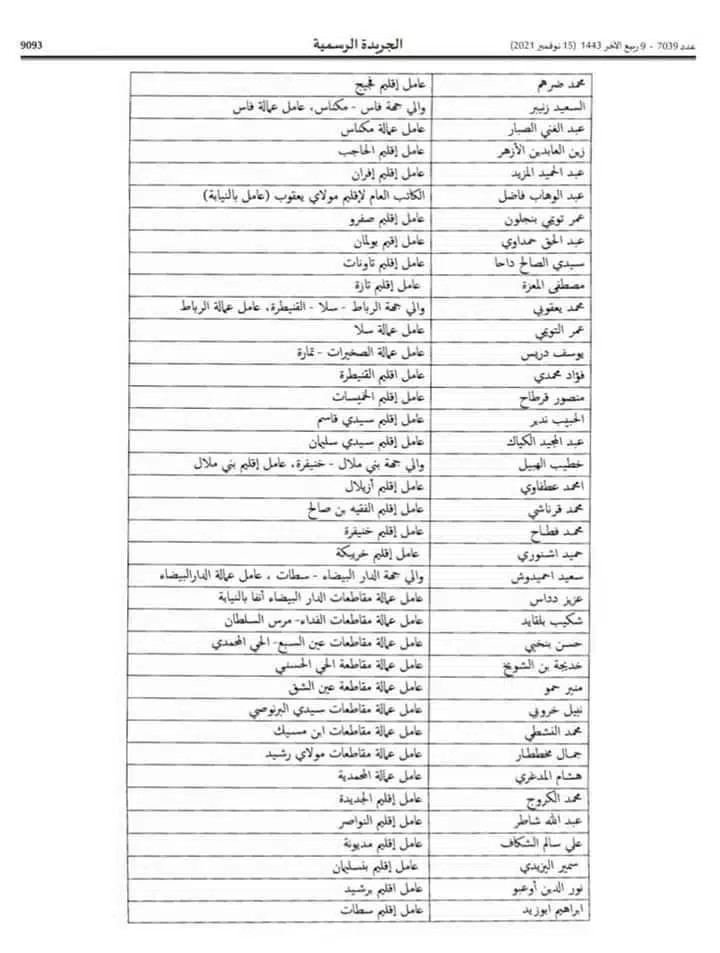 عدد 7039 - 9 ربيع الآخر 1443 (15 نوفمبر 2021) الجريدة الرسمية 9093
محمد ضرهم عامل إقليم فجيج
السعيد زنيبر والي جهة فاس - مكناس، عامل عمالة فاس
عبد الغني الصبار عامل عمالة مكناس
زين العابدين الأزهر عامل إقليم الحاجب
عبد الحميد المزيد عامل إقليم إفران
عبد الوهاب فاضل الكاتب العام لإقليم مولاي يعقوب (عامل بالنيابة)
عمر تويمي بنجلون عامل إقليم صفرو
عبد الحق حمداوي عامل إقيم بولمان
سيدي الصالح داحا عامل إقليم تاونات
مصطفى المعزة عامل إقليم تازة
محمد يعقوبي والي جهة الرباط - سلا - القنيطرة، عامل عمالة الرباط
عمر التويمي عامل عمالة سلا
يوسف دريس عامل عمالة الصخيرات - تمارة
فؤاد محمدي عامل اقليم القنيطرة
منصور قرطاح عامل إقليم الخميسات
الحبيب ندير عامل إقليم سيدي قاسم
عبد المجيد الكياك عامل إقليم سيدي سليمان
خطيب الهبيل والي جهة بني ملال - خنيفرة، عامل إقليم بني ملال
امحمد عطفاوي عامل إقليم أزيلال
محمد قرناشي عامل إقليم الفقيه بن صالح
محمد فطاح عامل إقليم خنيفرة
حميد اشنوري عامل إقليم خريبكة
سعيد احميدوش والي جهة الدار البيضاء - سطات ، عامل عمالة الدارالبيضاء
عزيز دداس عامل عمالة مقاطعات الدار البيضاء أنفا بالنيابة
شكيب بلقايد عامل عمالة مقاطعات الفداء- مرس السلطان
حسن بنخيي عامل عمالة مقاطعات عين السبع- الحي المحمدي
خديجة بن الشويخ عامل عمالة مقاطعة الحي الحسني
منير حمو عامل عمالة مقاطعة عين الشق
نبيل خروبي عامل عمالة مقاطعات سيدي البرنوصي
محمد النشطي عامل عمالة مقاطعات ابن مسيك
جمال مخططار عامل عمالة مقاطعات مولاي رشيد
هشام المدغري عامل عمالة المحمدية
محمد الكروج عامل إقليم الجديدة
عبد الله شاطر عامل إقليم النواصر
علي سالم الشكاف عامل إقليم مديونة
سمير اليزيدي عامل إقليم بنسليمان
نور الدين أوعبو عامل اقليم برشيد
ابراهيم ابوزيد عامل إقليم سطات